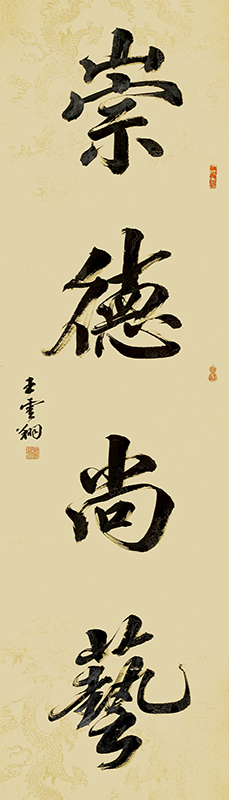 崇德尚藝
王雲翔